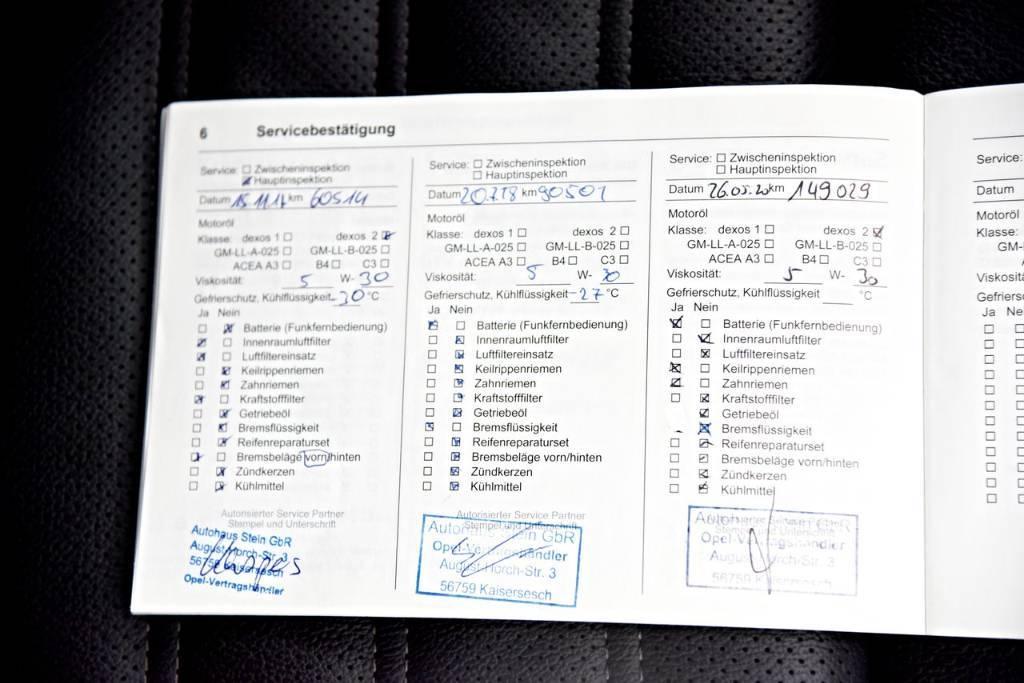 6 Servicebestätigung
Service: ☐ Zwischeninspektion
☒ Hauptinspektion
Datum km 60514
Motoröl
Klasse: dexos 1 ☐ dexos 2 ☒
GM-LL-A-025 ☐ GM-LL-B-025 ☐
ACEA A3 ☐ B4 ☐ C3 ☐
Viskosität: 5 W- 30
Gefrierschutz, Kühlflüssigkeit -30 °C
Ja Nein
☐ ☒ Batterie (Funkfernbedienung)
☒ ☐ Innenraumluftfilter
☒ ☐ Luftfiltereinsatz
☐ ☒ Keilrippenriemen
☐ ☒ Zahnriemen
☒ ☐ Kraftstofffilter
☐ ☒ Getriebeöl
☐ ☒ Bremsflüssigkeit
☐ ☒ Reifenreparaturset
☒ ☐ Bremsbeläge vorn/hinten
☐ ☒ Zündkerzen
☐ ☒ Kühlmittel
Autorisierter Service Partner
Stempel und Unterschrift
Autohaus Stein GbR
August-Horch-Str. 3
56759 Kaisersesch
Opel-Vertragshändler
Service: ☐ Zwischeninspektion
☐ Hauptinspektion
Datum 20.7.18 km 90501
Motoröl
Klasse: dexos 1 ☐ dexos 2 ☐
GM-LL-A-025 ☐ GM-LL-B-025 ☐
ACEA A3 ☐ B4 ☐ C3 ☐
Viskosität: 5 W- 30
Gefrierschutz, Kühlflüssigkeit -27 °C
Ja Nein
☒ ☐ Batterie (Funkfernbedienung)
☐ ☒ Innenraumluftfilter
☐ ☒ Luftfiltereinsatz
☐ ☒ Keilrippenriemen
☐ ☒ Zahnriemen
☐ ☒ Kraftstofffilter
☐ ☒ Getriebeöl
☒ ☐ Bremsflüssigkeit
☐ ☒ Reifenreparaturset
☐ ☒ Bremsbeläge vorn/hinten
☐ ☒ Zündkerzen
☐ ☒ Kühlmittel
Autorisierter Service Partner
Stempel und Unterschrift
Autohaus Stein GbR
Opel-Vertragshändler
August-Horch-Str. 3
56759 Kaisersesch
Service: ☐ Zwischeninspektion
☐ Hauptinspektion
Datum 26.05.20 km 149029
Motoröl
Klasse: dexos 1 ☐ dexos 2 ☒
GM-LL-A-025 ☐ GM-LL-B-025 ☐
ACEA A3 ☐ B4 ☐ C3 ☐
Viskosität: 5 W- 30
Gefrierschutz, Kühlflüssigkeit °C
Ja Nein
☒ ☐ Batterie (Funkfernbedienung)
☐ ☒ Innenraumluftfilter
☐ ☒ Luftfiltereinsatz
☒ ☐ Keilrippenriemen
☒ ☐ Zahnriemen
☐ ☒ Kraftstofffilter
☒ Getriebeöl
☒ Bremsflüssigkeit
☐ ☒ Reifenreparaturset
☐ ☒ Bremsbeläge vorn/hinten
☐ ☒ Zündkerzen
☐ ☒ Kühlmittel
Autorisierter Service Partner
Stempel und Unterschrift
Opel-Vertragshändler
August-Horch-Str. 3
56759 Kaisersesch
Service:
Datum
Motoröl
Klasse:
GM-
Ja